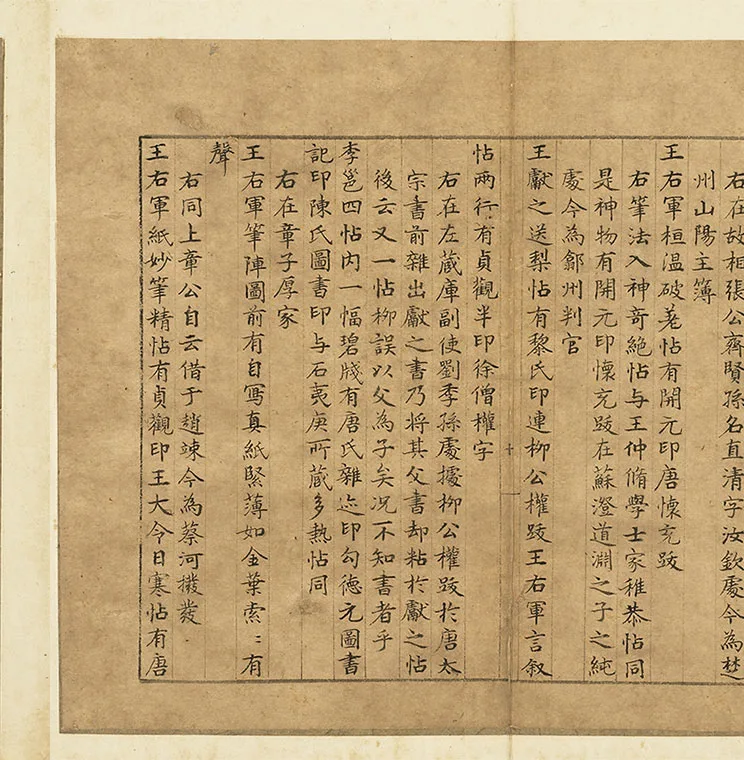 右在故相張公齊賢孫名直清字汝欽處今為楚
州山陽主簿
王右軍桓温破羗帖有開元印唐懷充跋
右筆法入神奇絶帖与王仲脩學士家稚恭帖同
是神物有開元印懷充跋在蘇澄道淵之子之純
處今為鄜州判官
王獻之送梨帖有黎氏印連柳公權跋王右軍言叙
帖兩行有貞觀半印徐僧權字
右在左蔵庫副使劉季孫處據柳公權跋於唐太
宗書前雜出獻之書乃將其父書却粘於獻之帖
後云又一帖柳誤以父為子矣况不知書者乎
李邕四帖内一幅碧牋有唐氏雜迹印勾徳元圖書
記印陳氏圖書印与石夷庚所蔵多熱帖同
右在章子厚家
王右軍筆陣圖前有自冩真紙緊薄如金葉索〻有
聲
右同上章公自云借于趙竦今為蔡河撥發
王右軍紙妙筆精帖有貞觀印王大令日寒帖有唐
十